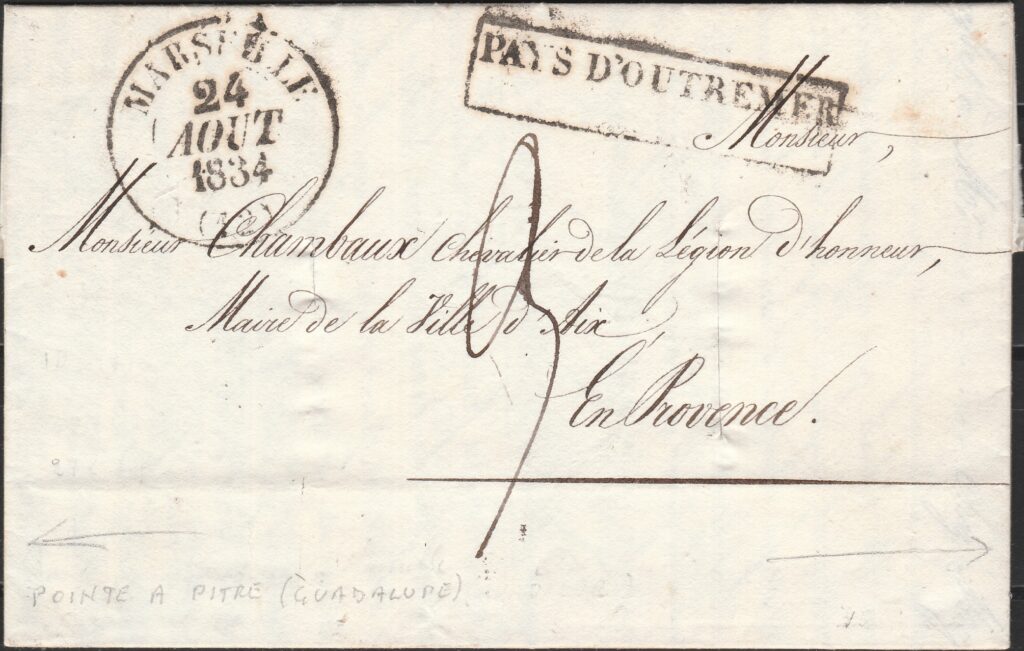 MARSEILLE
24
AOUT
1834
PAYS D'OUTREMER
Monsieur,
Monsieur Chambaux Chevalier de la Légion d'honneur,
Maire de la Ville d'Aix,
En Provence.
3
POINTE A PITRE (GUADALUPE)